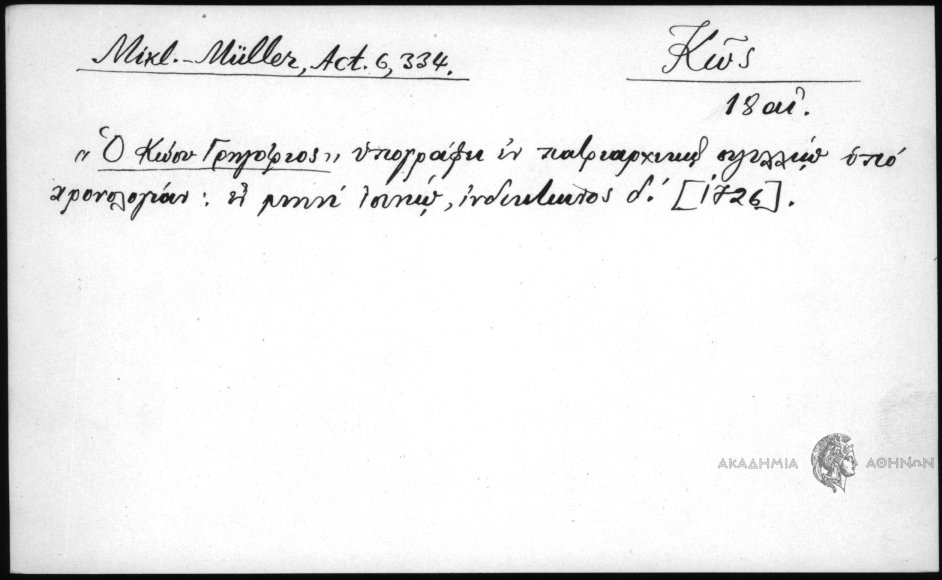 Mikl.-Müller, Act. 6, 334.
Κῶς
18 αἰ.
„Ὁ Κώου Γρηγόριος" ὑπογράφει ἐν πατριαρχικῷ σιγιλλίῳ ὑπό
χρονολογίαν: ἐν μηνί Ἰουνίῳ, ἰνδικτιῶνος δ΄. [1726].
ΑΚΑΔΗΜΙΑ ΑΘΗΝΩΝ